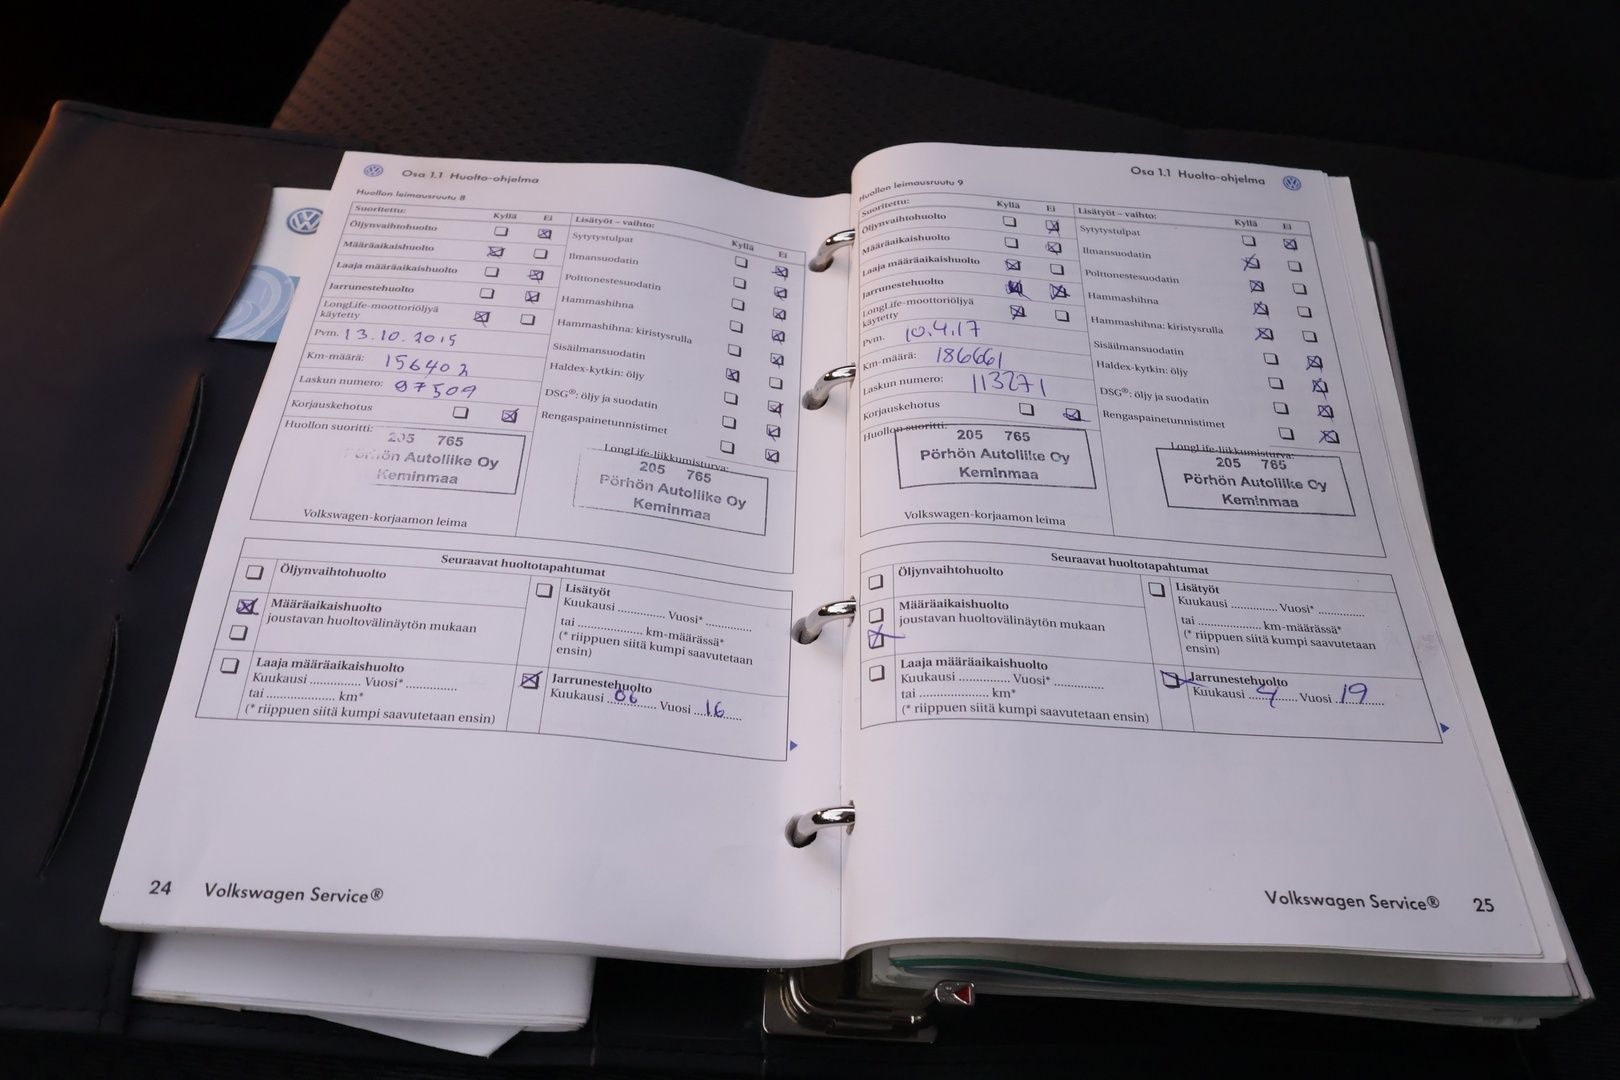 Osa 1.1 Huolto-ohjelma
Huollon leimausruutu 8
Suoritettu: Kyllä Ei
Öljynvaihtohuolto
Määräaikaishuolto
Laaja määräaikaishuolto
Jarrunestehuolto
LongLife-moottoriöljyä
käytetty
Pvm. 13.10.2015
Km-määrä: 156402
Laskun numero: 97509
Korjauskehotus
Huollon suoritti:
205 765
Pörhön Autoliike Oy
Keminmaa
Volkswagen-korjaamon leima
Lisätyöt – vaihto: Kyllä Ei
Sytytystulpat
Ilmansuodatin
Polttonestesuodatin
Hammashihna
Hammashihna: kiristysrulla
Sisäilmansuodatin
Haldex-kytkin: öljy
DSG®: öljy ja suodatin
Rengaspainetunnistimet
LongLife-liikkumisturva:
205 765
Pörhön Autoliike Oy
Keminmaa
Seuraavat huoltotapahtumat
Öljynvaihtohuolto
Määräaikaishuolto
joustavan huoltovälinäytön mukaan
Laaja määräaikaishuolto
Kuukausi .............. Vuosi* ..............
tai .................. km*
(* riippuen siitä kumpi saavutetaan ensin)
Lisätyöt
Kuukausi ............. Vuosi* .............
tai .................. km-määrässä*
(* riippuen siitä kumpi saavutetaan
ensin)
Jarrunestehuolto
Kuukausi 06 Vuosi 16
24 Volkswagen Service®
Osa 1.1 Huolto-ohjelma
Huollon leimausruutu 9
Suoritettu: Kyllä Ei
Öljynvaihtohuolto
Määräaikaishuolto
Laaja määräaikaishuolto
Jarrunestehuolto
LongLife-moottoriöljyä
käytetty
Pvm. 10.4.17
Km-määrä: 186661
Laskun numero: 113271
Korjauskehotus
Huollon suoritti:
205 765
Pörhön Autoliike Oy
Keminmaa
Volkswagen-korjaamon leima
Lisätyöt – vaihto: Kyllä Ei
Sytytystulpat
Ilmansuodatin
Polttonestesuodatin
Hammashihna
Hammashihna: kiristysrulla
Sisäilmansuodatin
Haldex-kytkin: öljy
DSG®: öljy ja suodatin
Rengaspainetunnistimet
LongLife-liikkumisturva:
205 765
Pörhön Autoliike Oy
Keminmaa
Seuraavat huoltotapahtumat
Öljynvaihtohuolto
Määräaikaishuolto
joustavan huoltovälinäytön mukaan
Laaja määräaikaishuolto
Kuukausi .............. Vuosi* ..............
tai .............. km*
(* riippuen siitä kumpi saavutetaan ensin)
Lisätyöt
Kuukausi ............. Vuosi* .............
tai .................. km-määrässä*
(* riippuen siitä kumpi saavutetaan
ensin)
Jarrunestehuolto
Kuukausi 4 Vuosi 19
Volkswagen Service® 25